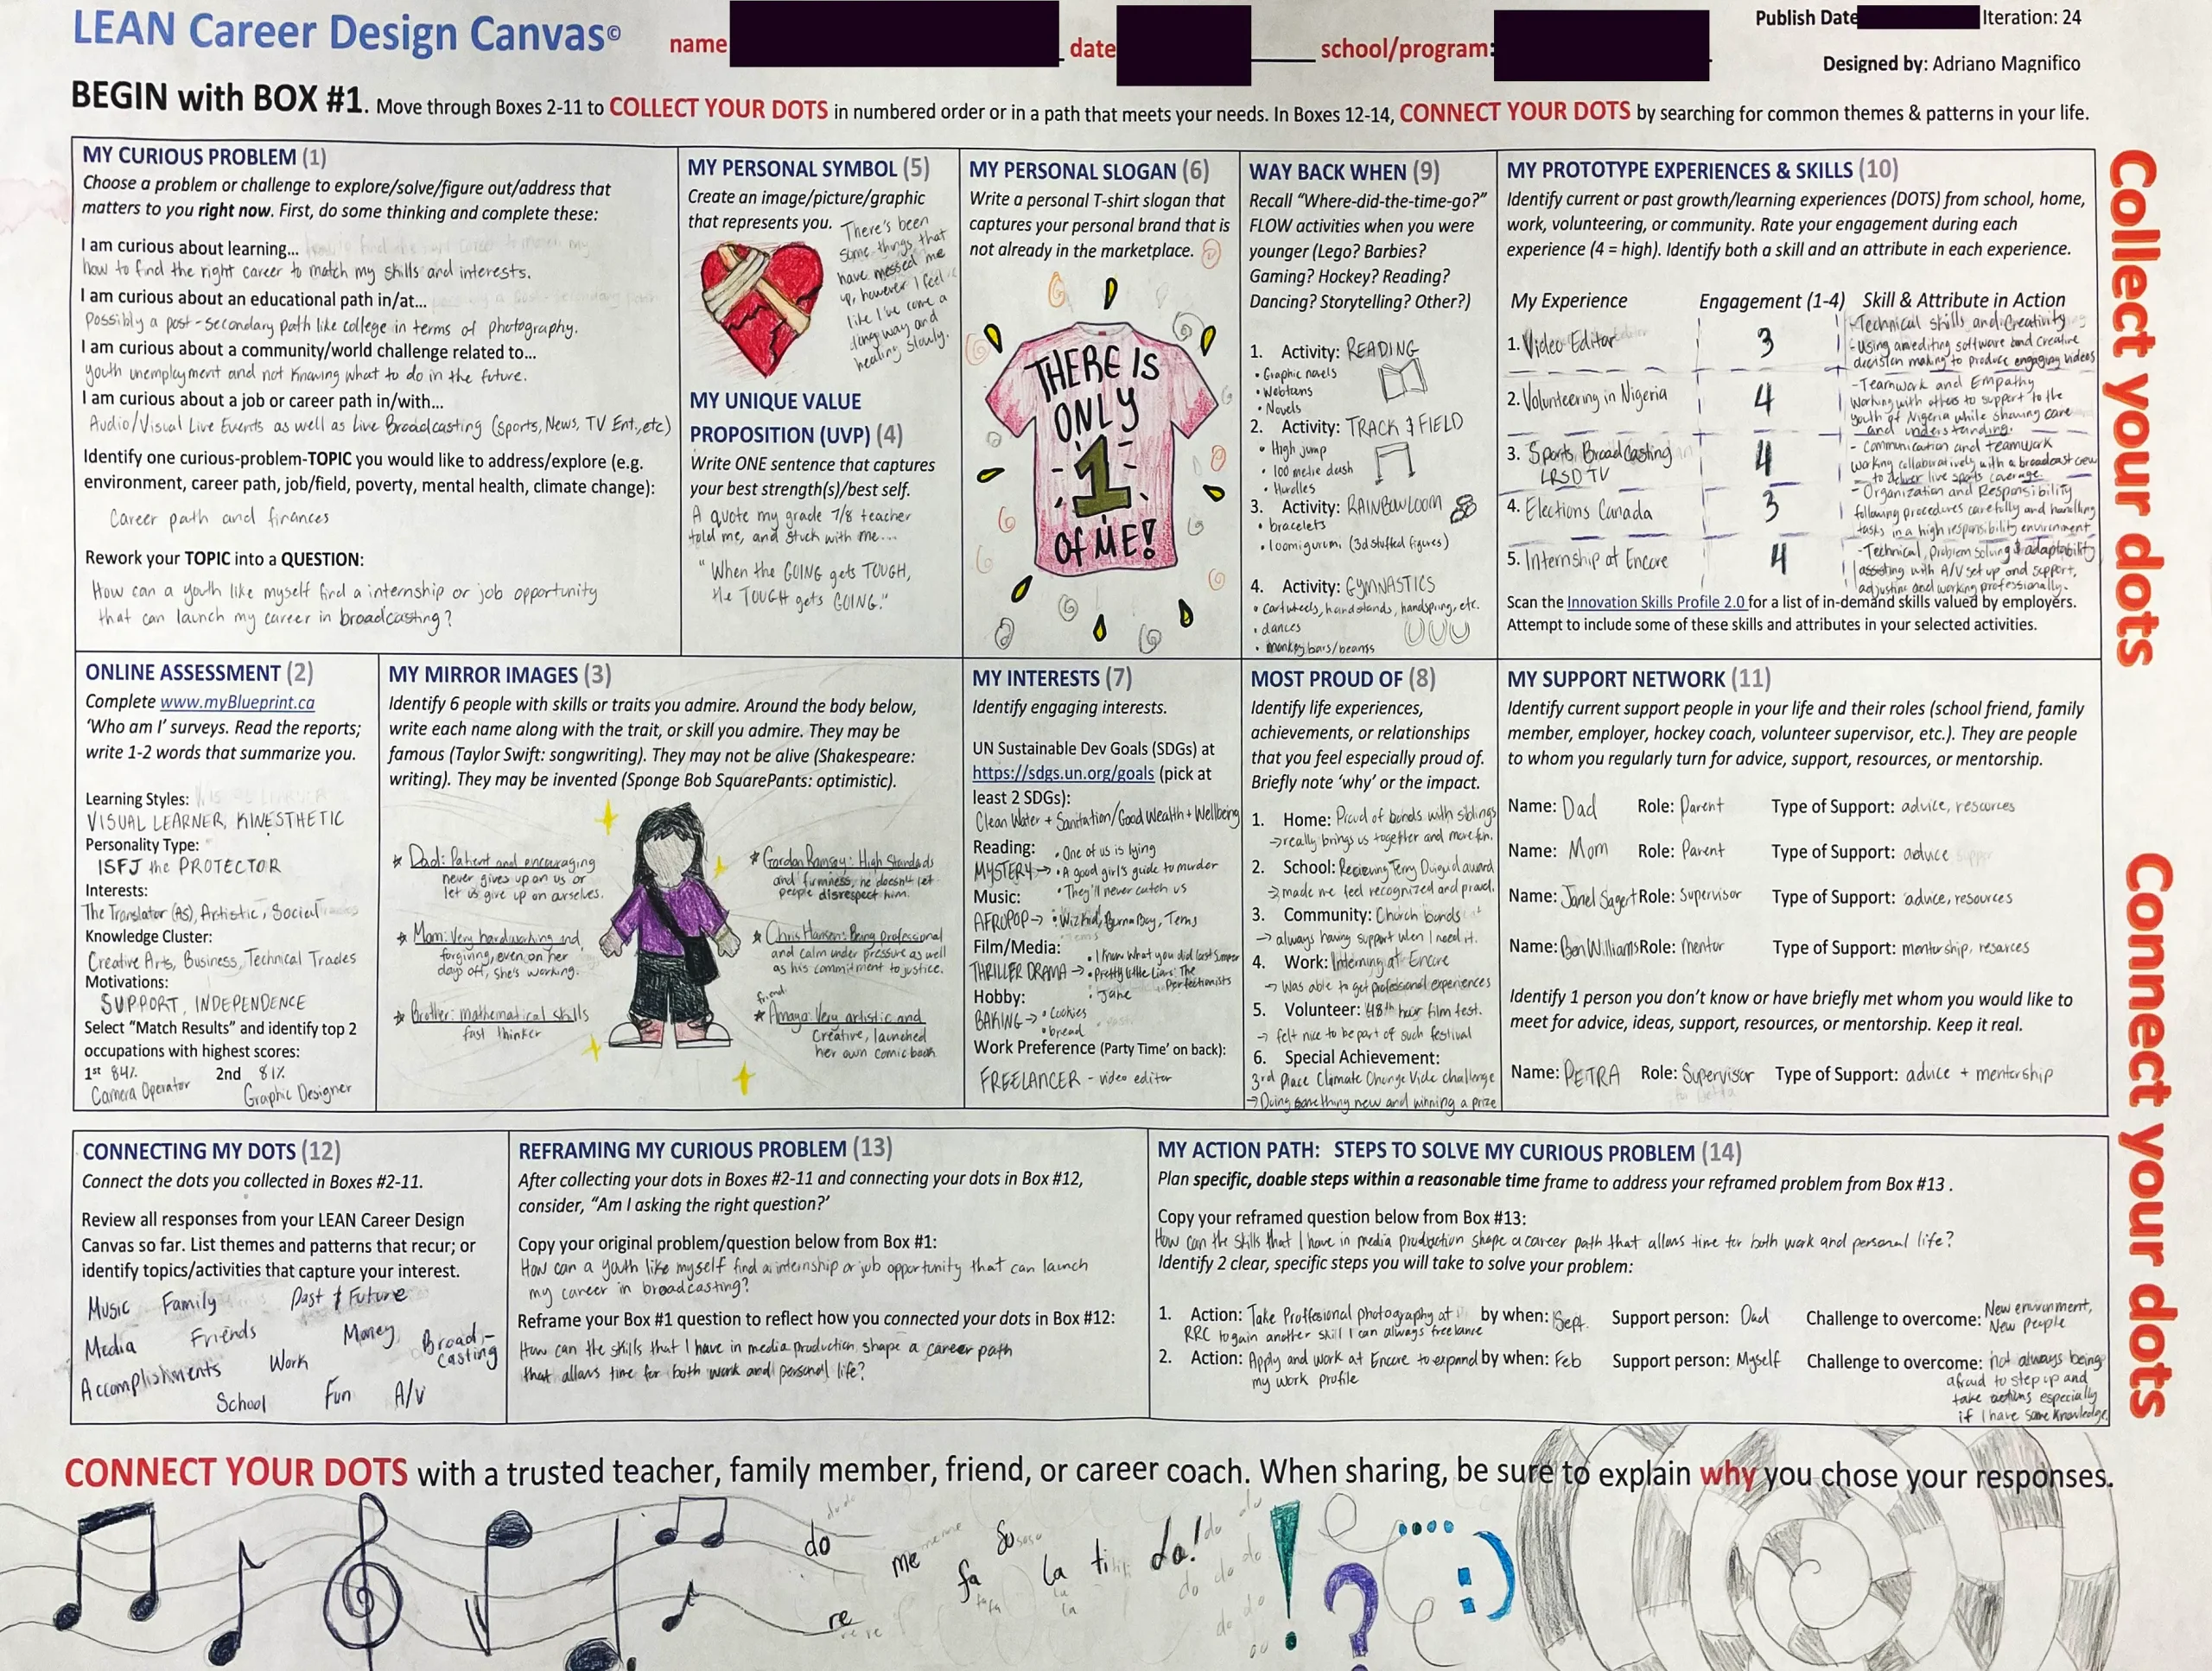 LEAN Career Design Canvas©
name
date
school/program:
Publish Date
Iteration: 24
Designed by: Adriano Magnifico
BEGIN with BOX #1. Move through Boxes 2-11 to COLLECT YOUR DOTS in numbered order or in a path that meets your needs. In Boxes 12-14, CONNECT YOUR DOTS by searching for common themes & patterns in your life.
MY CURIOUS PROBLEM (1)
Choose a problem or challenge to explore/solve/figure out/address that
matters to you right now. First, do some thinking and complete these:
I am curious about learning...
how to find the right career to match my skills and interests.
I am curious about an educational path in/at...
Possibly a post-secondary path like college in terms of photography.
I am curious about a community/world challenge related to...
youth unemployment and not knowing what to do in the future.
I am curious about a job or career path in/with...
Audio/Visual Live Events as well as Live Broadcasting (sports, News, TV Ent., etc)
Identify one curious-problem-TOPIC you would like to address/explore (e.g.
environment, career path, job/field, poverty, mental health, climate change):
Career path and finances
Rework your TOPIC into a QUESTION:
How can a youth like myself find a internship or job opportunity
that can launch my career in broadcasting?
MY PERSONAL SYMBOL (5)
Create an image/picture/graphic
that represents you.
There's been
some things that
have messed me
up, however I feel
like I've come a
long way and
healing slowly.
MY UNIQUE VALUE
PROPOSITION (UVP) (4)
Write ONE sentence that captures
your best strength(s)/best self.
A quote my grade 7/8 teacher
told me, and stuck with me....
"When the GOING gets TOUGH,
the TOUGH gets GOING."
MY PERSONAL SLOGAN (6)
Write a personal T-shirt slogan that
captures your personal brand that is
not already in the marketplace.
THERE IS
ONLY
1
of ME!
WAY BACK WHEN (9)
Recall "Where-did-the-time-go?"
FLOW activities when you were
younger (Lego? Barbies?
Gaming? Hockey? Reading?
Dancing? Storytelling? Other?)
1. Activity: READING
• Graphic novels
• Webtoons
• Novels
2. Activity: TRACK & FIELD
• High jump
• 100 metre dash
• Hurdles
3. Activity: RAINBOWLOOM
• bracelets
• loomigurumi (3d stuffed figures)
4. Activity: GYMNASTICS
• cartwheels, handstands, handspring, etc.
• dances
• monkey bars/beams
MY PROTOTYPE EXPERIENCES & SKILLS (10)
Identify current or past growth/learning experiences (DOTS) from school, home,
work, volunteering, or community. Rate your engagement during each
experience (4 = high). Identify both a skill and an attribute in each experience.
My Experience Engagement (1-4) Skill & Attribute in Action
1. Video Editor 3
-Technical skills and Creativity
-using an editing software and creative
decision making to produce engaging videos
2. Volunteering in Nigeria 4
-Teamwork and Empathy
working with others to support to the
youth of Nigeria while showing care
and understanding.
3. Sports Broadcasting 4
LRSD TV
- Communication and teamwork
working collaboratively with a broadcast crew
to deliver live sports coverage.
4. Elections Canada 3
- Organization and Responsibility
following procedures carefully and handling
tasks in a high responsibility envirnment
5. Internship at Encore 4
-Technical, problem solving & adaptability
assisting with A/V set up and support,
adjusting and working professionally.
Scan the Innovation Skills Profile 2.0 for a list of in-demand skills valued by employers.
Attempt to include some of these skills and attributes in your selected activities.
Collect your dots
ONLINE ASSESSMENT (2)
Complete www.myBlueprint.ca
'Who am I' surveys. Read the reports;
write 1-2 words that summarize you.
Learning Styles:
VISUAL LEARNER, KINESTHETIC
Personality Type:
ISFJ the PROTECTOR
Interests:
The Translator (AS), Artistic, Social
Knowledge Cluster:
Creative Arts, Business, Technical Trades
Motivations:
SUPPORT, INDEPENDENCE
Select "Match Results" and identify top 2
occupations with highest scores:
1st 84% 2nd 81%
Camera Operator Graphic Designer
MY MIRROR IMAGES (3)
Identify 6 people with skills or traits you admire. Around the body below,
write each name along with the trait, or skill you admire. They may be
famous (Taylor Swift: songwriting). They may not be alive (Shakespeare:
writing). They may be invented (Sponge Bob SquarePants: optimistic).
Dad: Patient and encouraging
never gives up on us or
let us give up on ourselves.
Mom: Very hardworking and
forgiving, even on her
days off, she's working.
Brother: mathematical skills
fast thinker
Gordon Ramsay: High Standards
and firmness, he doesn't let
people disrespect him.
Chris Hansen: Being professional
and calm under pressure as well
as his commitment to justice.
friend
Amaya: Very artistic and
creative, launched
her own comic book
MY INTERESTS (7)
Identify engaging interests.
UN Sustainable Dev Goals (SDGs) at
https://sdgs.un.org/goals (pick at
least 2 SDGs):
Clean Water + Sanitation/Good Wealth + Wellbeing
Reading: • One of us is lying
MYSTERY → • A good girl's guide to murder
• They'll never catch us
Music:
AFROPOP → • Wizkid, Burna Boy, Tems
Film/Media: • I know what you did last summer
THRILLER DRAMA → • Pretty little Liars: The
Perfectionists
• Jane
Hobby:
BAKING → • cookies
• bread
Work Preference (Party Time' on back):
FREELANCER - video editor
MOST PROUD OF (8)
Identify life experiences,
achievements, or relationships
that you feel especially proud of.
Briefly note 'why' or the impact.
1. Home: Proud of bonds with siblings
→ really brings us together and more fun.
2. School: Recieving Terry Duguid award
→ made me feel recognized and proud.
3. Community: Church bonds
→ always having support when I need it.
4. Work: Interning at Encore
→ Was able to get professional experiences
5. Volunteer: 48th hour film fest.
→ felt nice to be part of such festival
6. Special Achievement:
3rd Place Climate Change Vide challenge
→ Doing something new and winning a prize
MY SUPPORT NETWORK (11)
Identify current support people in your life and their roles (school friend, family
member, employer, hockey coach, volunteer supervisor, etc.). They are people
to whom you regularly turn for advice, support, resources, or mentorship.
Name: Dad Role: Parent Type of Support: advice, resources
Name: Mom Role: Parent Type of Support: advice
Name: Janel Sagert Role: Supervisor Type of Support: advice, resources
Name: Ben Williams Role: mentor Type of Support: mentorship, resarces
Identify 1 person you don't know or have briefly met whom you would like to
meet for advice, ideas, support, resources, or mentorship. Keep it real.
Name: PETRA Role: Supervisor Type of Support: advice + mentorship
Connect your dots
CONNECTING MY DOTS (12)
Connect the dots you collected in Boxes #2-11.
Review all responses from your LEAN Career Design
Canvas so far. List themes and patterns that recur; or
identify topics/activities that capture your interest.
Music Family Past & Future
Media Friends Money Broad-
casting
Accomplishments Work
School Fun A/V
REFRAMING MY CURIOUS PROBLEM (13)
After collecting your dots in Boxes #2-11 and connecting your dots in Box #12,
consider, "Am I asking the right question?'
Copy your original problem/question below from Box #1:
How can a youth like myself find a internship or job opportunity that can launch
my career in broadcasting?
Reframe your Box #1 question to reflect how you connected your dots in Box #12:
How can the skills that I have in media production shape a career path
that allows time for both work and personal life?
MY ACTION PATH: STEPS TO SOLVE MY CURIOUS PROBLEM (14)
Plan specific, doable steps within a reasonable time frame to address your reframed problem from Box #13 .
Copy your reframed question below from Box #13:
How can the skills that I have in media production shape a career path that allows time for both work and personal life?
Identify 2 clear, specific steps you will take to solve your problem:
1. Action: Take Proffesional photography at by when: Sept. Support person: Dad Challenge to overcome: New environment,
RRC to gain another skill I can always freelance
New People
2. Action: Apply and work at Encore to expand by when: Feb Support person: Myself Challenge to overcome: not always being
my work profile
afraid to step up and
take actions especially
if I have some knowledge.
CONNECT YOUR DOTS with a trusted teacher, family member, friend, or career coach. When sharing, be sure to explain why you chose your responses.
do
re
me
fa
so
la
ti
do!
! ? :)